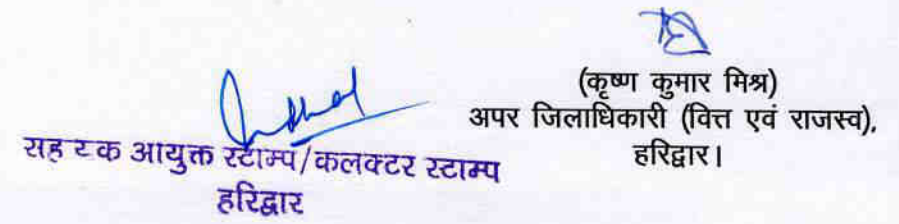 (कृष्ण कुमार मिश्र)
अपर जिलाधिकारी (वित्त एवं राजस्व),
हरिद्वार।
सह यक आयुक्त स्टाम्प/कलक्टर स्टाम्प
हरिद्वार